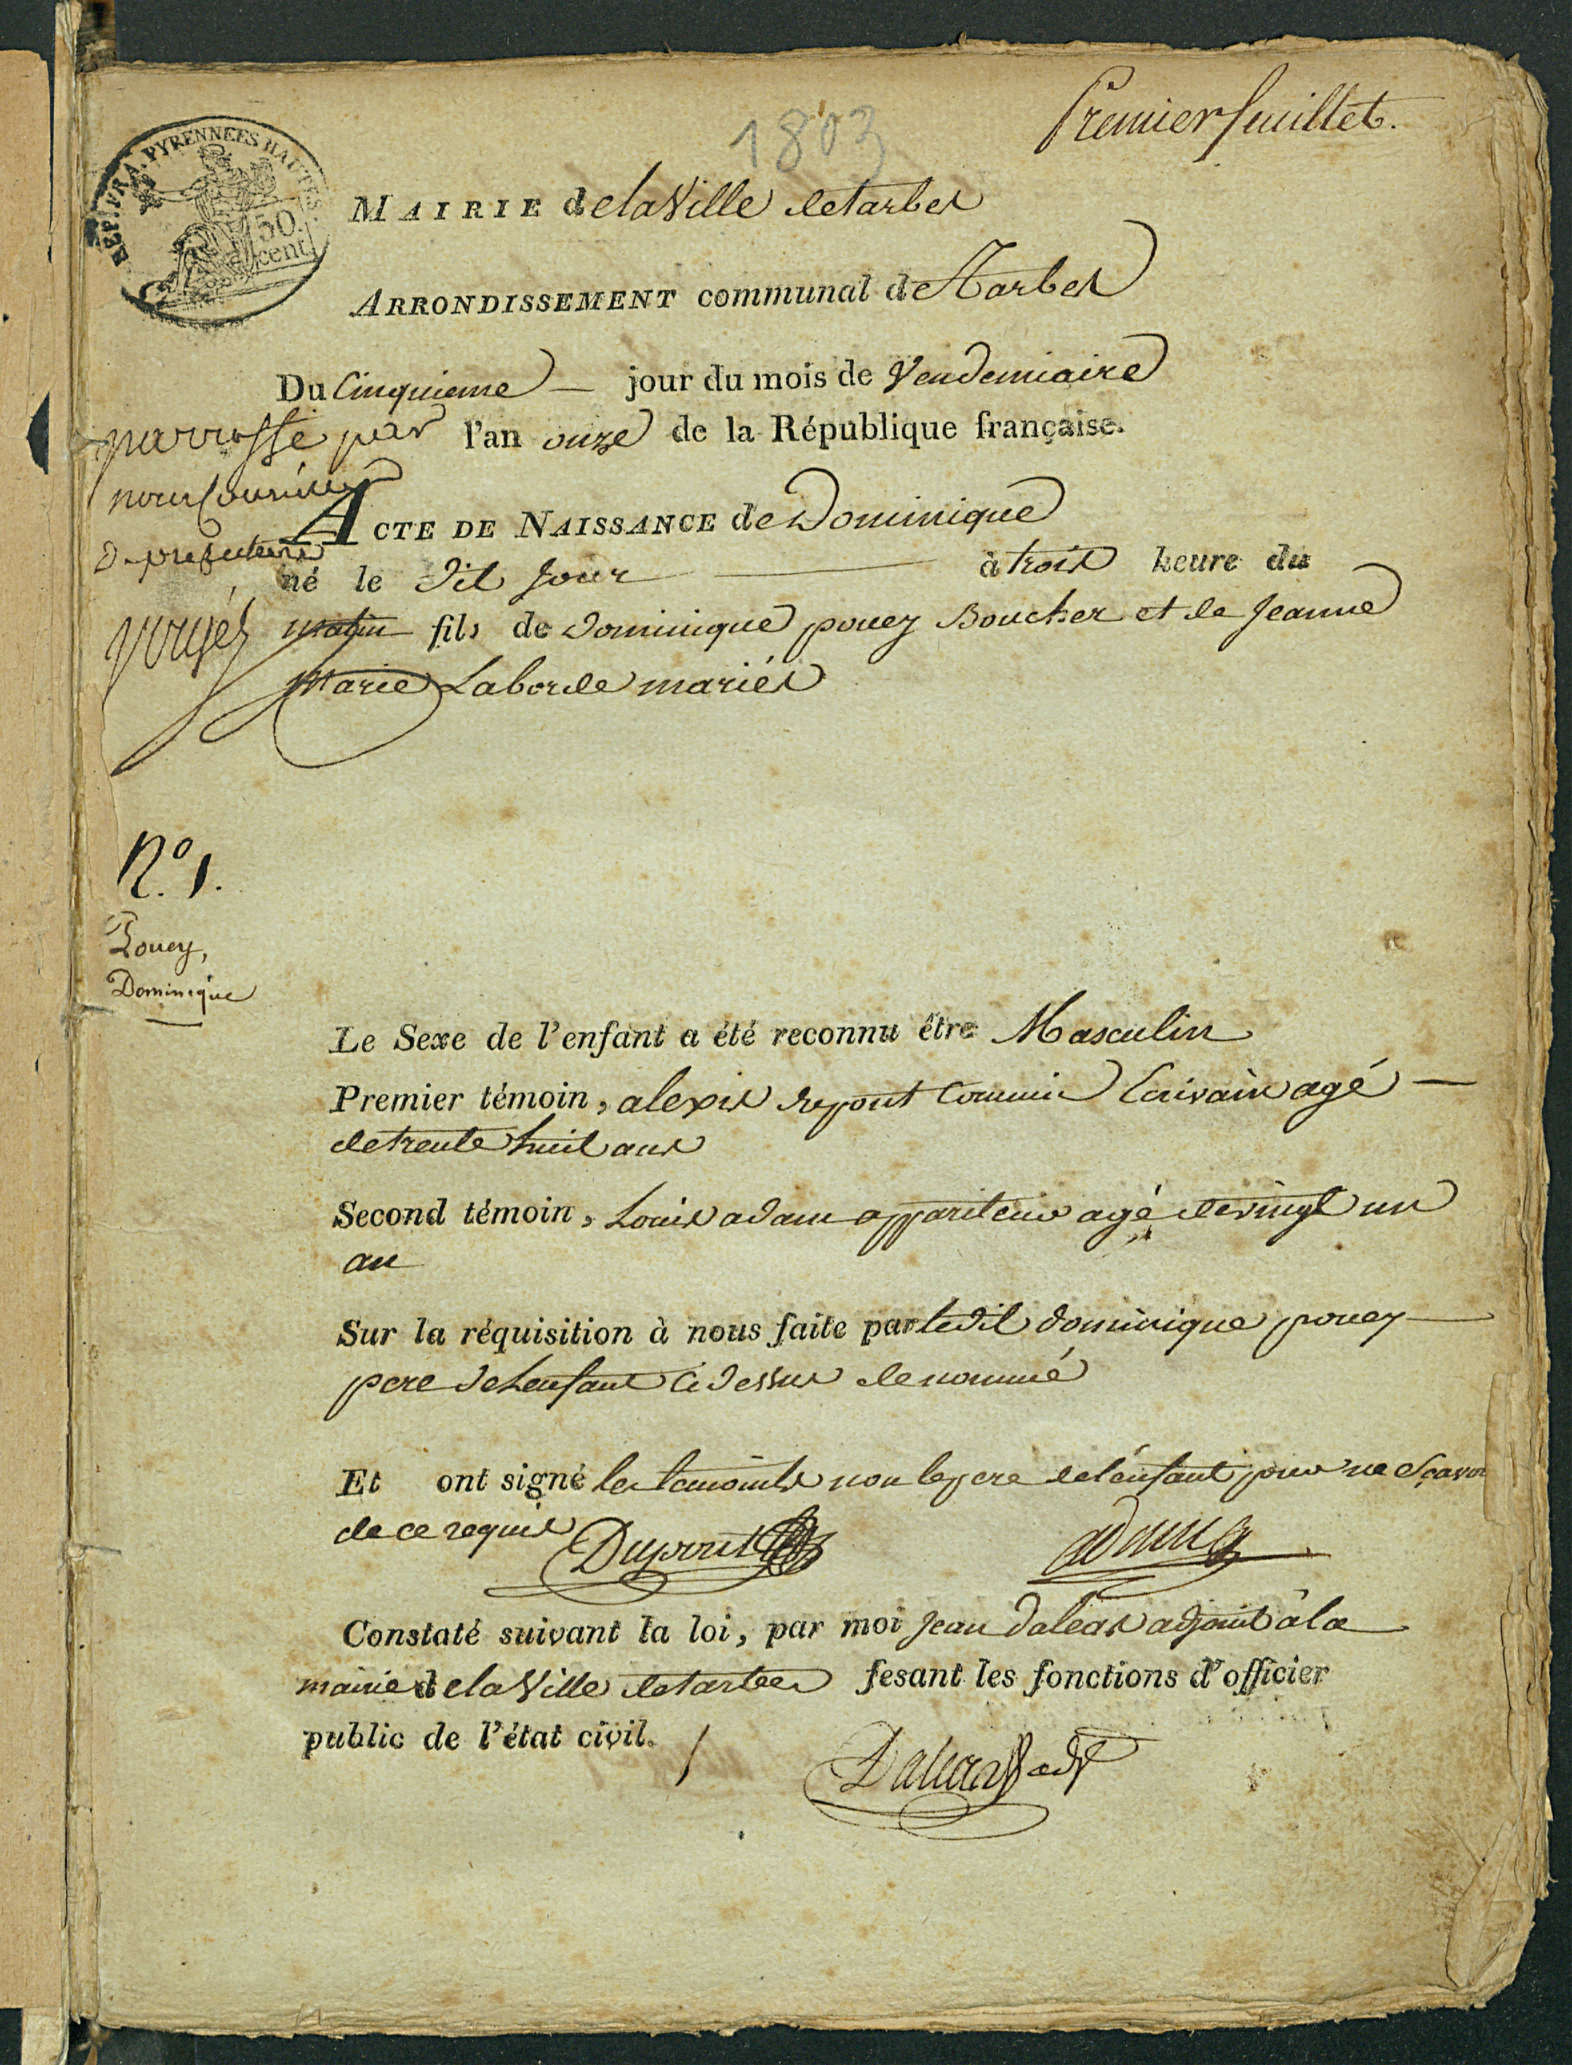 Premier feuillet.
1803
REP. FRA. PYRENNEES HAUTES.
50.
cent.
MAIRIE de la Ville de tarbes
ARRONDISSEMENT communal de Tarbes
Du Cinquieme — jour du mois de Vendemiaire
l'an onze de la République française.
parraffé par
nous Conseiller
de prefecture
Vergés
ACTE DE NAISSANCE de Dominique
né le dit jour — à trois heure du
matin fils de dominique pouey Boucher et de Jeanne
Marie Laborde mariés
N.º 1.
Pouey,
Dominique
Le Sexe de l'enfant a été reconnu être Masculin
Premier témoin, alexis dupont Commis Ecrivain agé —
de trente huit ans
Second témoin, Louis adam appariteur agé de vingt un
an
Sur la réquisition à nous faite par le dit dominique pouey —
pere de Lenfant ci dessus denommé
Et ont signé les temoints non le pere de lénfant pour ne sçavoir
de ce requis
Dupont
adam
Constaté suivant la loi, par moi Jean daleas adjoint à la
mairie de la Ville de tarbes fesant les fonctions d'officier
public de l'état civil.
Daleas adjt